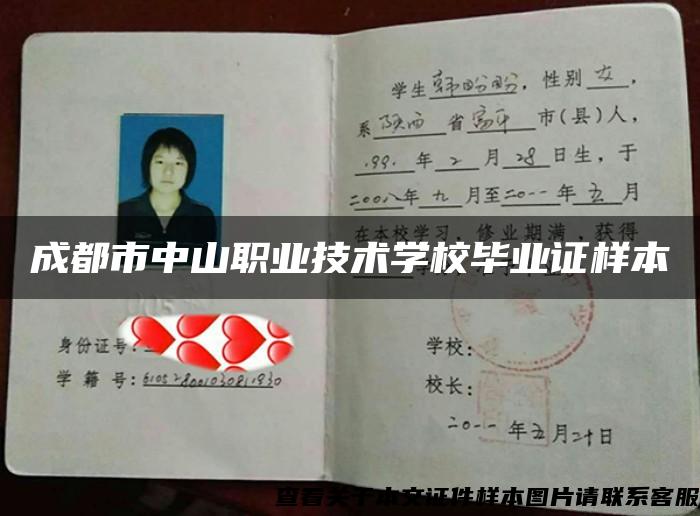 学生韩盼盼，性别女，
系陕西省富平市(县)人，
1991年2月28日生，于
二00八年九月至二0一一年五月
在本校学习，修业期满，获得
成都市中山职业技术学校毕业证样本
身份证号：
学籍号：610528001030811930
学校：
校长：
二0一一年五月二十日
查看关于本文证件样本图片请联系客服